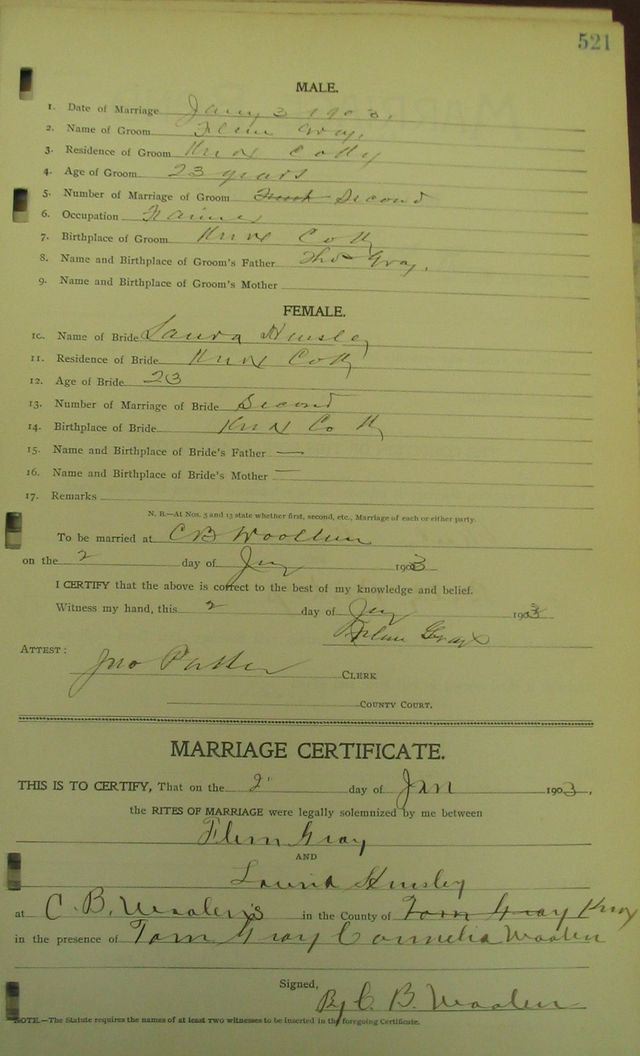 521
MALE.
1. Date of Marriage Jany 3 1903.
2. Name of Groom Flem Gray,
3. Residence of Groom Knox Co Ky
4. Age of Groom 23 years
5. Number of Marriage of Groom Second
6. Occupation Farmer
7. Birthplace of Groom Knox Co Ky
8. Name and Birthplace of Groom's Father Tho Gray,
9. Name and Birthplace of Groom's Mother
FEMALE.
10. Name of Bride Laura Hensley
11. Residence of Bride Knox Co Ky
12. Age of Bride 23
13. Number of Marriage of Bride Second
14. Birthplace of Bride Knox Co Ky
15. Name and Birthplace of Bride's Father —
16. Name and Birthplace of Bride's Mother —
17. Remarks
N. B.—At Nos. 5 and 13 state whether first, second, etc., Marriage of each or either party.
To be married at C B Woollum
on the 2 day of Jny 1903
I CERTIFY that the above is correct to the best of my knowledge and belief.
Witness my hand, this 2 day of Jny 1903
Flem Gray
ATTEST: Jno Parker CLERK
COUNTY COURT.
MARRIAGE CERTIFICATE.
THIS IS TO CERTIFY, That on the 2" day of Jan 1903,
the RITES OF MARRIAGE were legally solemnized by me between
Flem Gray
AND
Laura Hensley
at C. B. Woolen's in the County of Tom Gray Knox
in the presence of Tom Gray Cornelia Woolen
Signed,
By C. B. Woolen
NOTE.—The Statute requires the names of at least two witnesses to be inserted in the foregoing Certificate.